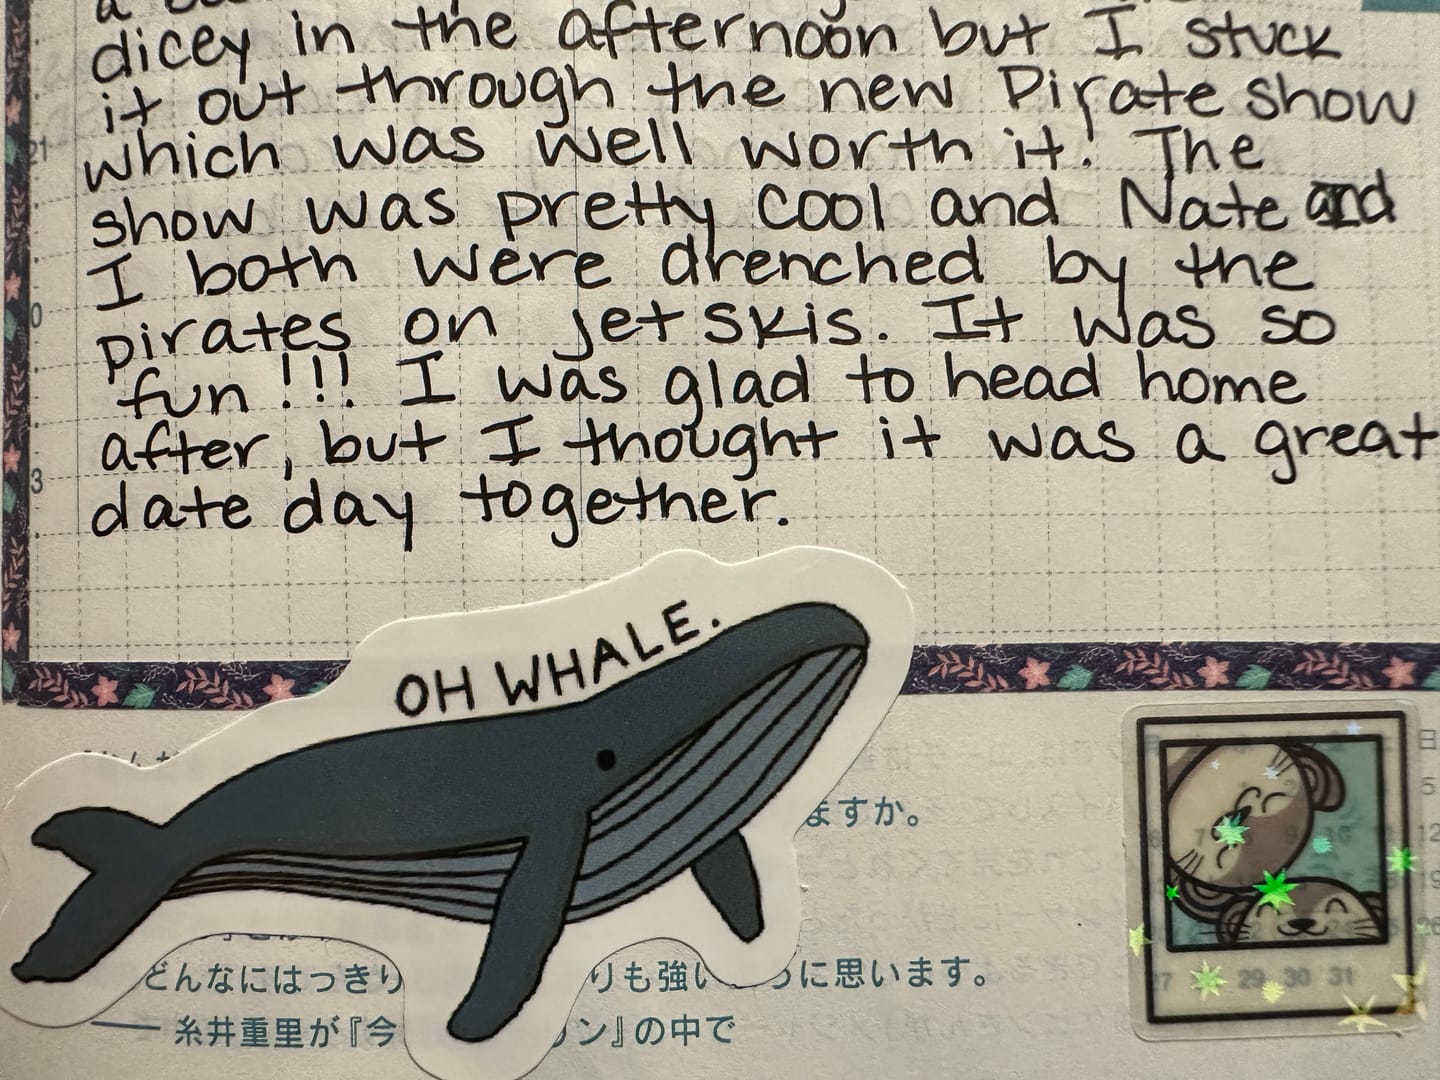 dicey in the afternoon but I stuck
it out through the new Pirate show
which was well worth it! The
show was pretty cool and Nate and
I both were drenched by the
pirates on jet skis. It was so
fun!!! I was glad to head home
after, but I thought it was a great
date day together.
21
0
3
OH WHALE.
ますか。
どんなにはっきり りも強い に思います。
―― 糸井重里が『今 ン』の中で
日
5
12
19
26
27 29 30 31